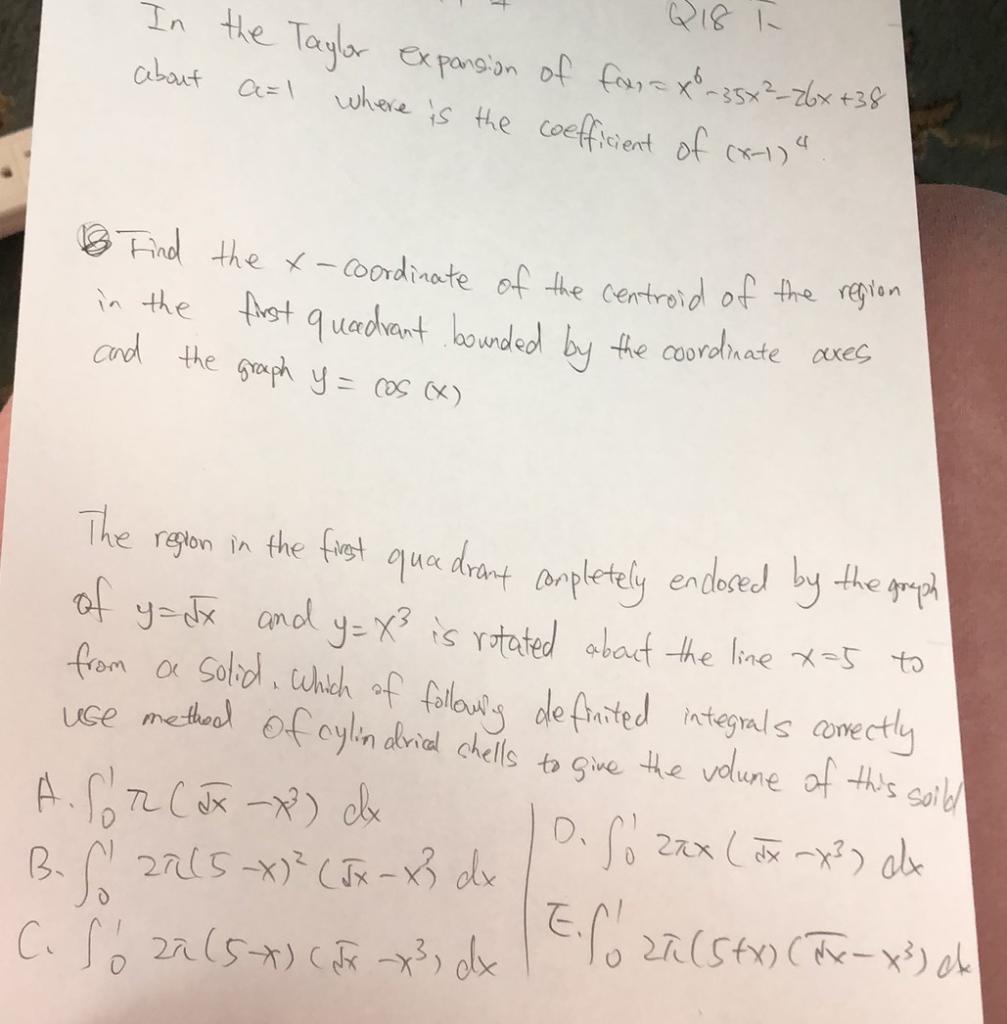 Q18
In the Taylor expansion of f(x) = x⁶-35x²-26x+38
about a=1 where is the coefficient of (x-1)⁴.
Find the x-coordinate of the centroid of the region
in the first quadrant bounded by the coordinate axes
and the graph y = cos (x)
The region in the first quadrant completely enclosed by the graph
of y=√x and y=x³ is rotated about the line x=5 to
from a solid. Which of following definited integrals correctly
use method of cylindrical shells to give the volume of this soild
A. ∫₀¹ π (√x - x³) dx
B. ∫₀¹ 2π(5-x)² (√x - x³) dx
C. ∫₀¹ 2π(5-x) (√x - x³) dx
D. ∫₀¹ 2πx (√x - x³) dx
E. ∫₀¹ 2π(5+x) (√x - x³) dx